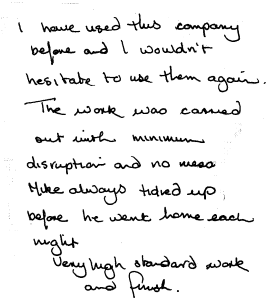 I have used this company
before and I wouldn't
hesitate to use them again.
The work was carried
out with minimum
disruption and no mess
Mike always tidied up
before he went home each
night
Very high standard work
and finish.